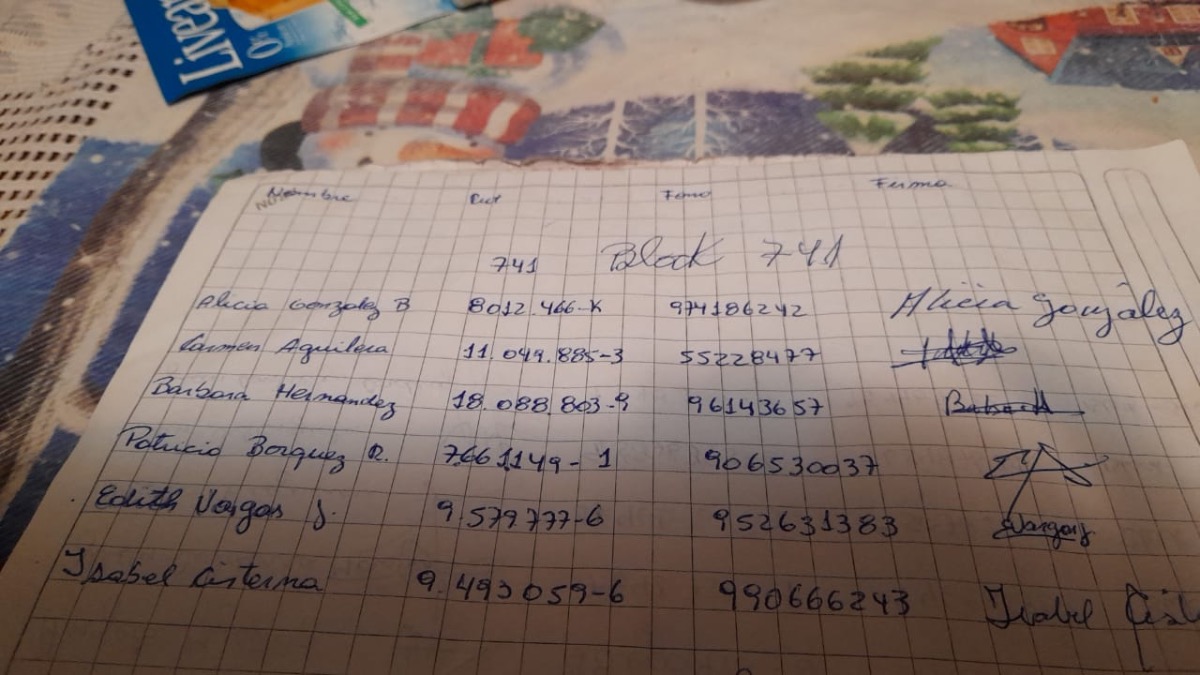 Livean
0%
Nombre Rut Fono Firma
741 Block 741
Alicia Gonzalez B 8012.466-K 974186242 Alicia González
Carmen Aguilera 11.049.885-3 55228477
Barbara Hernandez 18.088.803-9 96143657
Patricio Borquez R. 7.661.149-1 906530037
Edith Vargas J. 9.579.777-6 952631383 Vargas
Isabel Cisterna 9.493.059-6 990666243 Isabel Cist